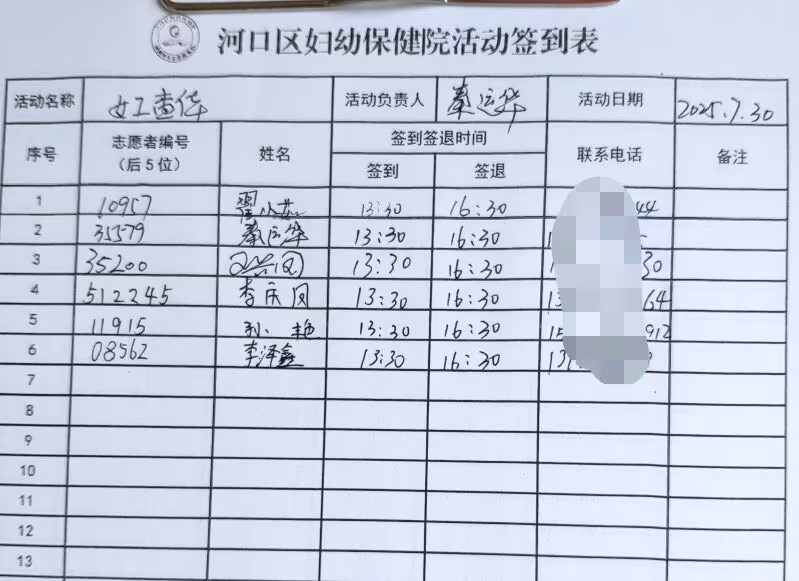 河口区妇幼保健院活动签到表
活动名称 女工查体 活动负责人 秦运华 活动日期 2025.7.30
序号 志愿者编号（后5位） 姓名 签到签退时间 联系电话 备注
签到 签退
1 10957 翟小茹 13:30 16:30 44
2 35579 秦运华 13:30 16:30 1
3 35200 13:30 16:30 1 30
4 512245 李庆凤 13:30 16:30 13 64
5 11915 孙艳 13:30 16:30 15 912
6 08562 李泽鑫 13:30 16:30 13
7
8
9
10
11
12
13